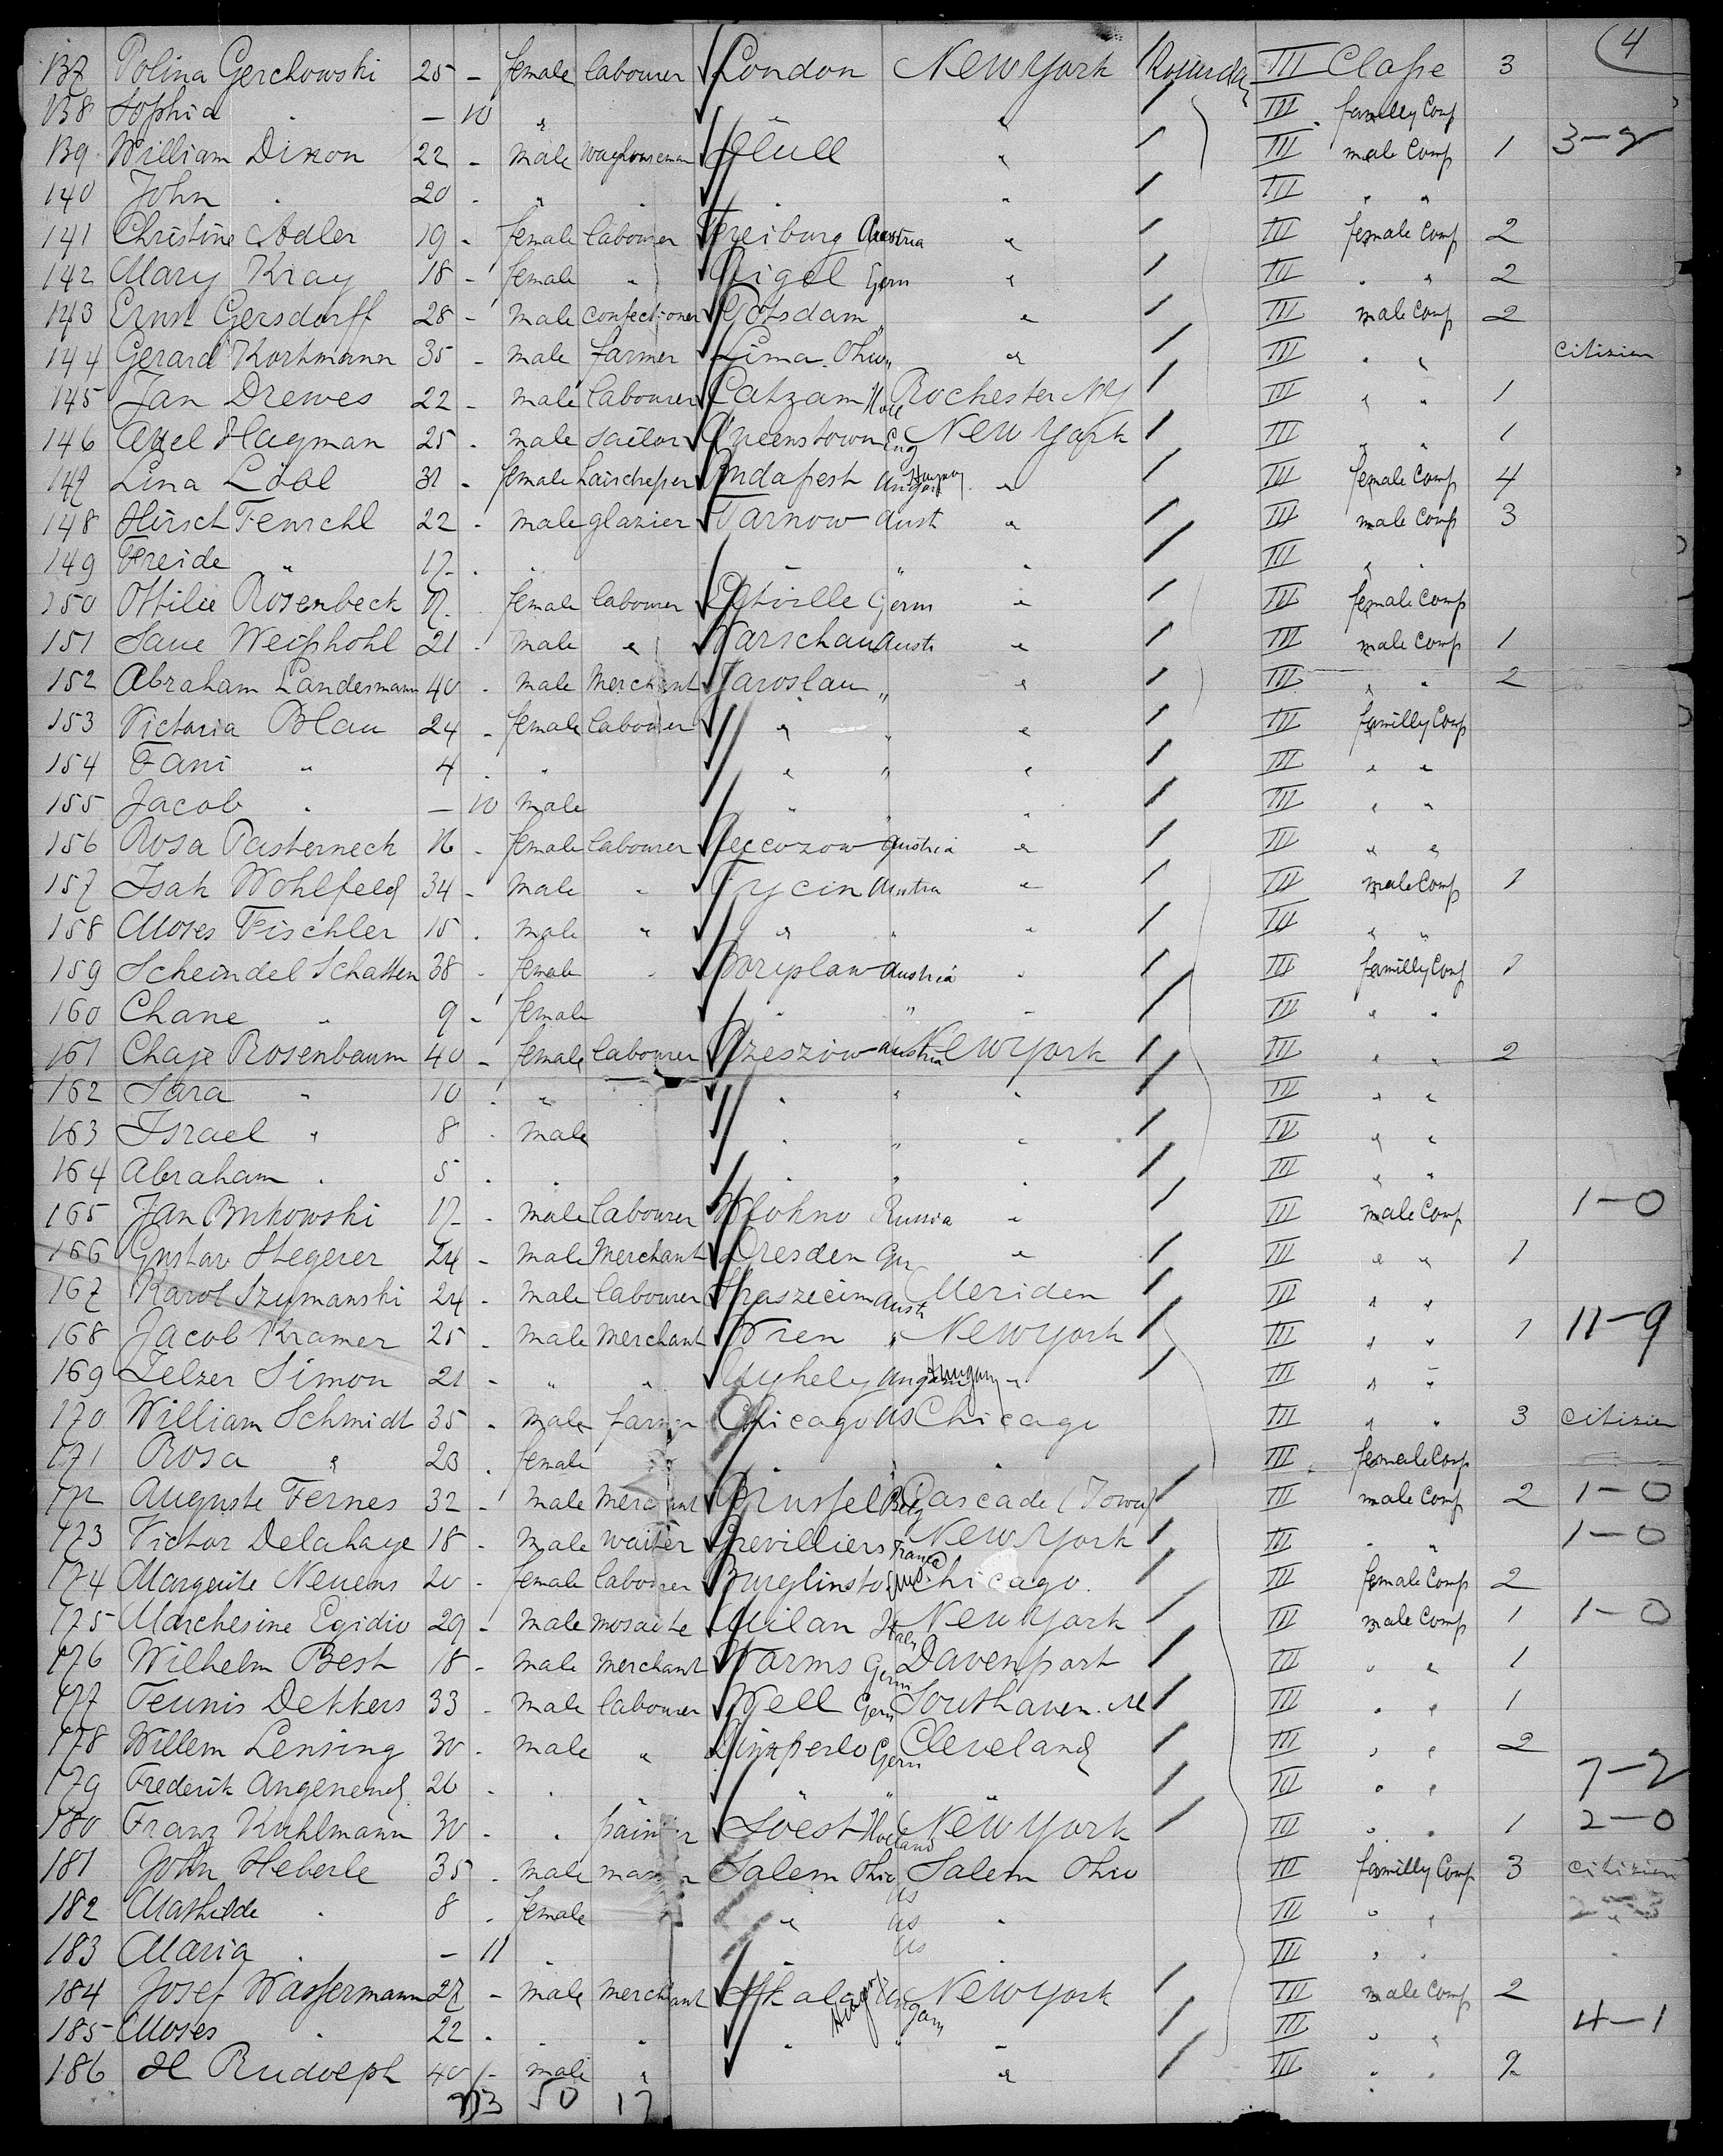 (4
137 Polina Gerchowski 25 - female labourer London New York III Classe 3
138 Sophia " - 10 " " " III familly Comp
139 William Dixon 22 - male Hull " III male Comp 1 3-2
140 John " 20 - " " " " III " "
141 Christine Adler 19 - female labourer Freiburg Austria " III female Comp 2
142 Mary Kray 18 - female " Rigel Germ " III " " 2
143 Ernst Gersdorff 28 - male confectioner Potsdam " " III male Comp 2
144 Gerard Kortmann 35 - male farmer Lima Ohio " " III " " citizien
145 Jan Drewes 22 - male labourer Catzam Holl Rochester NY III " " 1
146 Axel Hagman 25 - male sailor Queenstown Eng New York III " " 1
147 Lina Löbl 31 - female Budapest Ungarn Hungary " III female Comp 4
148 Hirsch Fenichl 22 - male glazier Tarnow Aust " III male Comp 3
149 Freide " 17 - " " " " III " "
150 Ottilie Rosenbeck 17 - female labourer Eltville Germ " III female Comp
151 Saue Weisshohl 21 - male " Warschau Austr " III male Comp 1
152 Abraham Landesmann 40 - male Merchant Jaroslau " " III " " 2
153 Victoria Blau 24 - female labourer " " " III familly Comp
154 Fani " 4 - " " " " III " "
155 Jacob " - 10 male " " " III " "
156 Rosa Pasterneck 16 - female labourer Austria " III " "
157 Isak Wohlfeld 34 - male " Frycin Austria " III male Comp 1
158 Moses Fischler 15 - male " " " " III " "
159 Scheindel Schatten 38 - female " Boryslaw Austria " III familly Comp 1
160 Chane " 9 - female " " " III " "
161 Chaje Rosenbaum 40 - female labourer Rzeszow Austria New York III " " 2
162 Sara " 10 - " " " " III " "
163 Israel " 8 - male " " " III " "
164 Abraham " 5 - " " " " III " "
165 Jan Bukowski 17 - male labourer Wlohno Russia " III male Comp 1-0
166 Gustav Stegerer 24 - male Merchant Dresden Ger " III " " 1
167 Karol Szymanski 24 - male labourer Straszecim Austr Meriden III " "
168 Jacob Kramer 25 - male Merchant Wien " New York III " " 1 11-9
169 Zelzer Simon 21 - " " Ujhely Ungarn Hungary " III " "
170 William Schmidt 35 - male farmer Chicago US Chicago III " " 3 citizien
171 Rosa " 23 - female " " III female Comp
172 Auguste Fernes 32 - male Merchant Brussel Belg Cascade (Iowa) III male Comp 2 1-0
173 Victor Delahaye 18 - male waiter Grevilliers France New York III " " 1-0
174 Margerite Neuens 20 - female labourer Burglinster Chicago III female Comp 2
175 Marchesine Egidio 29 - male mosaiste Milan Italy New York III male Comp 1 1-0
176 Wilhelm Best 18 - male Merchant Worms Germ Davenport III " " 1
177 Teunis Dekkers 33 - male labourer Well Germ Southaven. M III " " 1
178 Willem Lensing 30 - male " Dinxperlo Germ Cleveland III " " 2
179 Frederik Angenend 26 - " " " " III " " 7-2
180 Franz Kuhlmann 30 - " painter Soest Holland New York III " " 1 2-0
181 John Heberle 35 - male mason Salem Ohio Salem Ohio III familly Comp 3 citizien
182 Mathilde " 8 - female " US " III " "
183 Maria " - 11 " " US " III " "
184 Josef Wassermann 27 - male merchant Skala Ungarn Hungary New York III male Comp 2
185 Moses " 22 - " " " " " III " " 4-1
186 H Rudolph 40 - male " " III " " 2
50 17